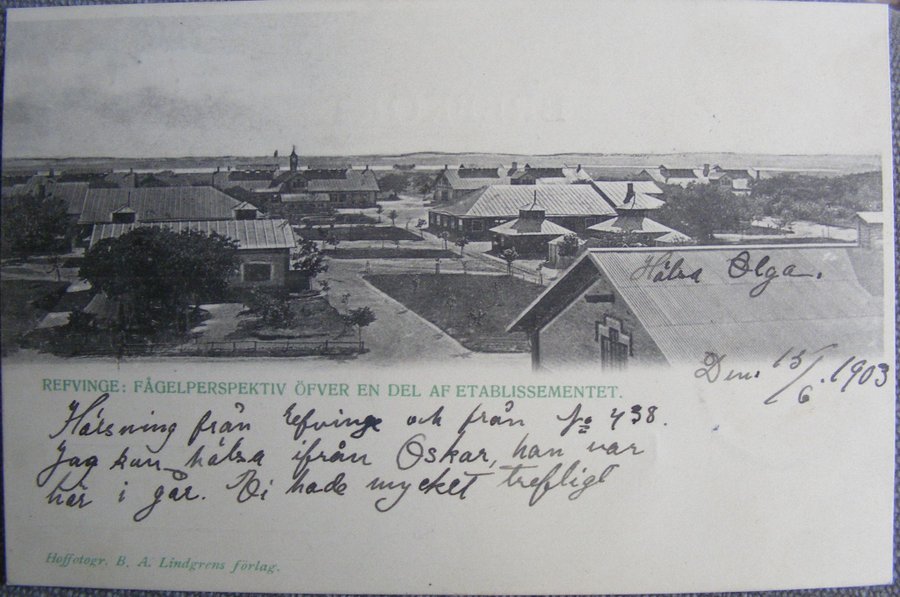 Hälsa Olga.
Den. 15/6. 1903
REFVINGE: FÅGELPERSPEKTIV ÖFVER EN DEL AF ETABLISSEMENTET.
Hälsning från refvinge och från No 438.
Jag kan hälsa ifrån Oskar, han var
här i går. Vi hade mycket trefligt
Hoffotogr. B. A. Lindgrens förlag.